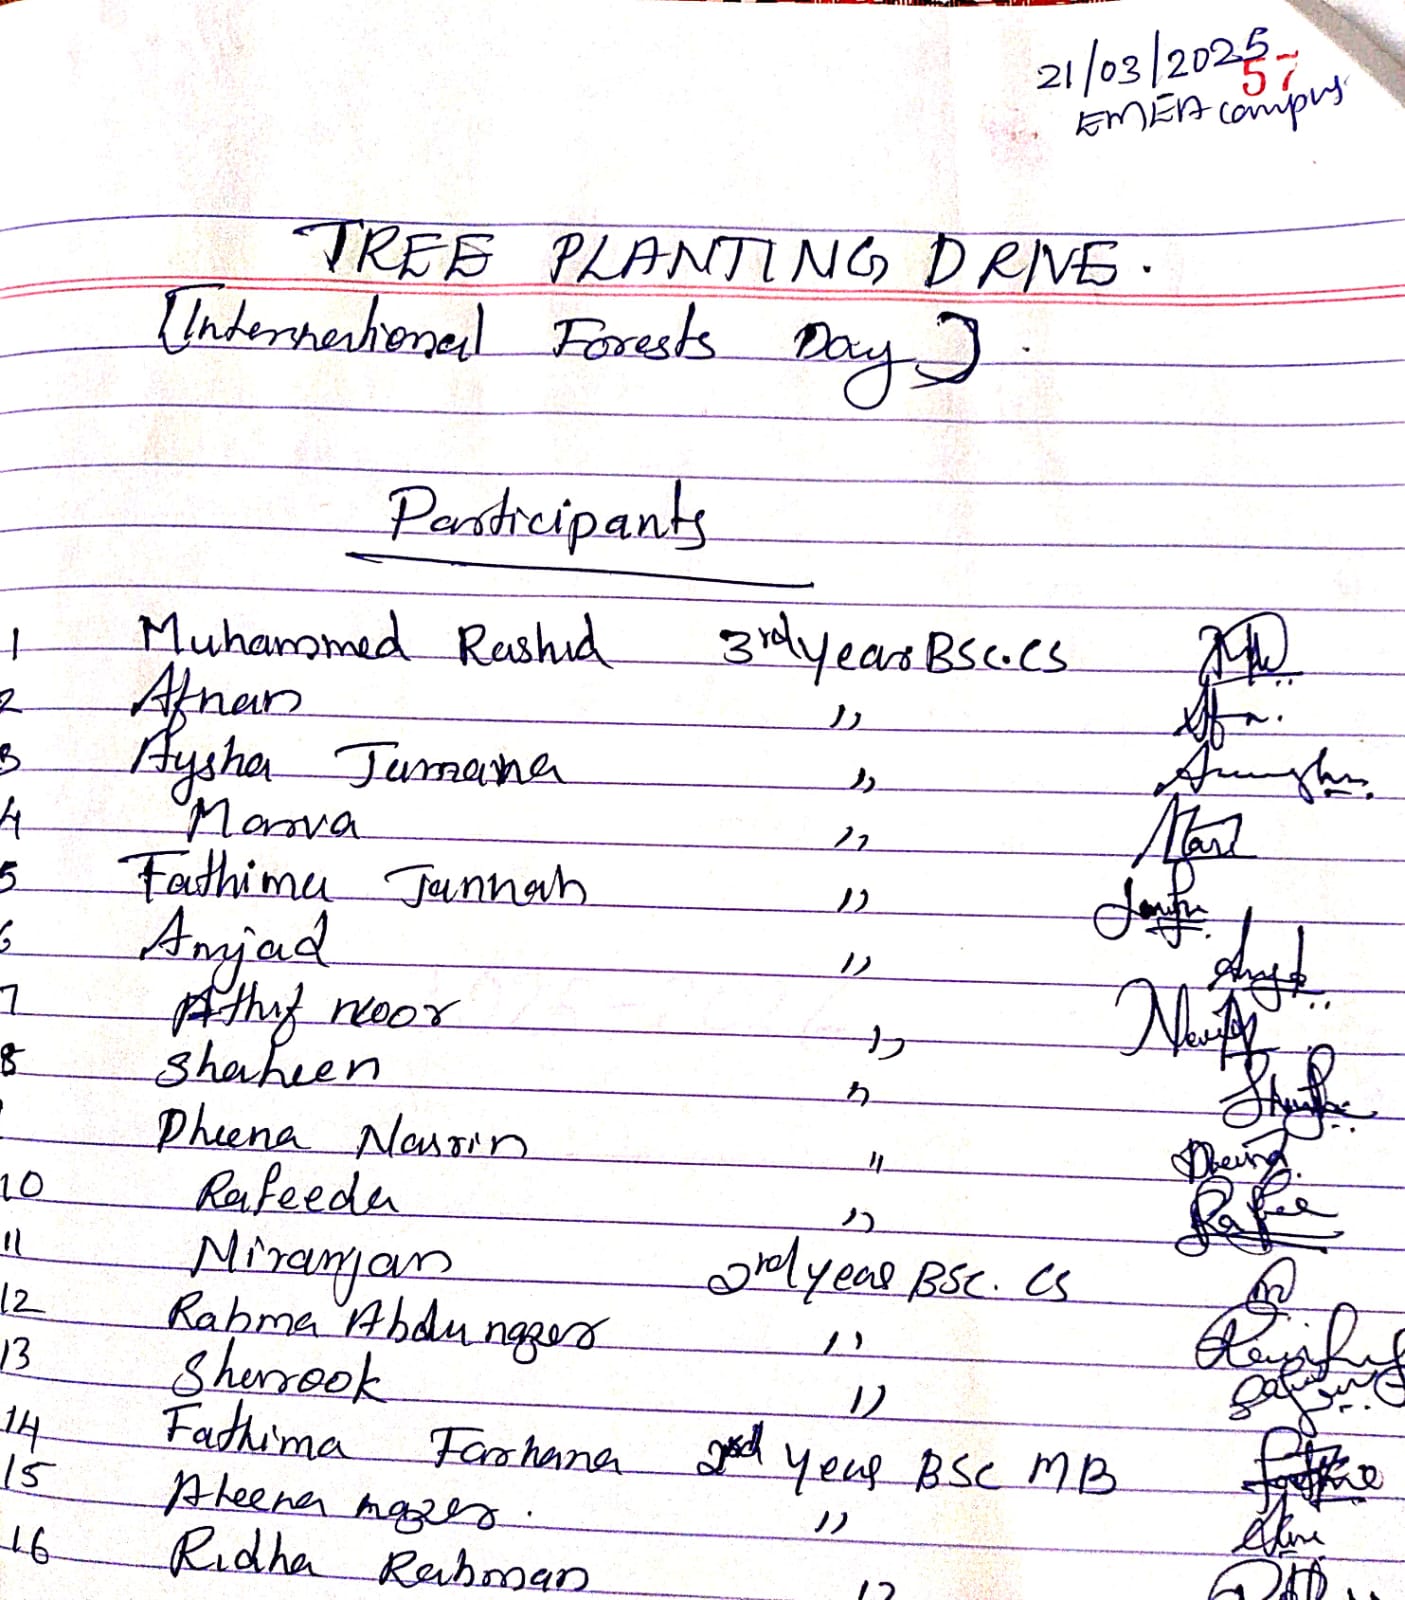 21/03/2025
57
EMEA campus
TREE PLANTING DRIVE.
[International Forests Day].
Participants
1 Muhammed Rashid 3rd year BSc.CS
2 Afnan ,,
3 Aysha Jumana ,,
4 Marva ,,
5 Fathima Jannah ,,
6 Amjad ,,
7 Athif noor ,,
8 Shaheen ,,
Dheena Nasrin ,,
10 Rafeeda ,,
11 Niranjan 2rd year BSC. CS
12 Rahma Abdu ,,
13 Sharook ,,
14 Fathima Farhana 2nd year BSC MB
15 Aleena ,,
16 Ridha Rahman ,,